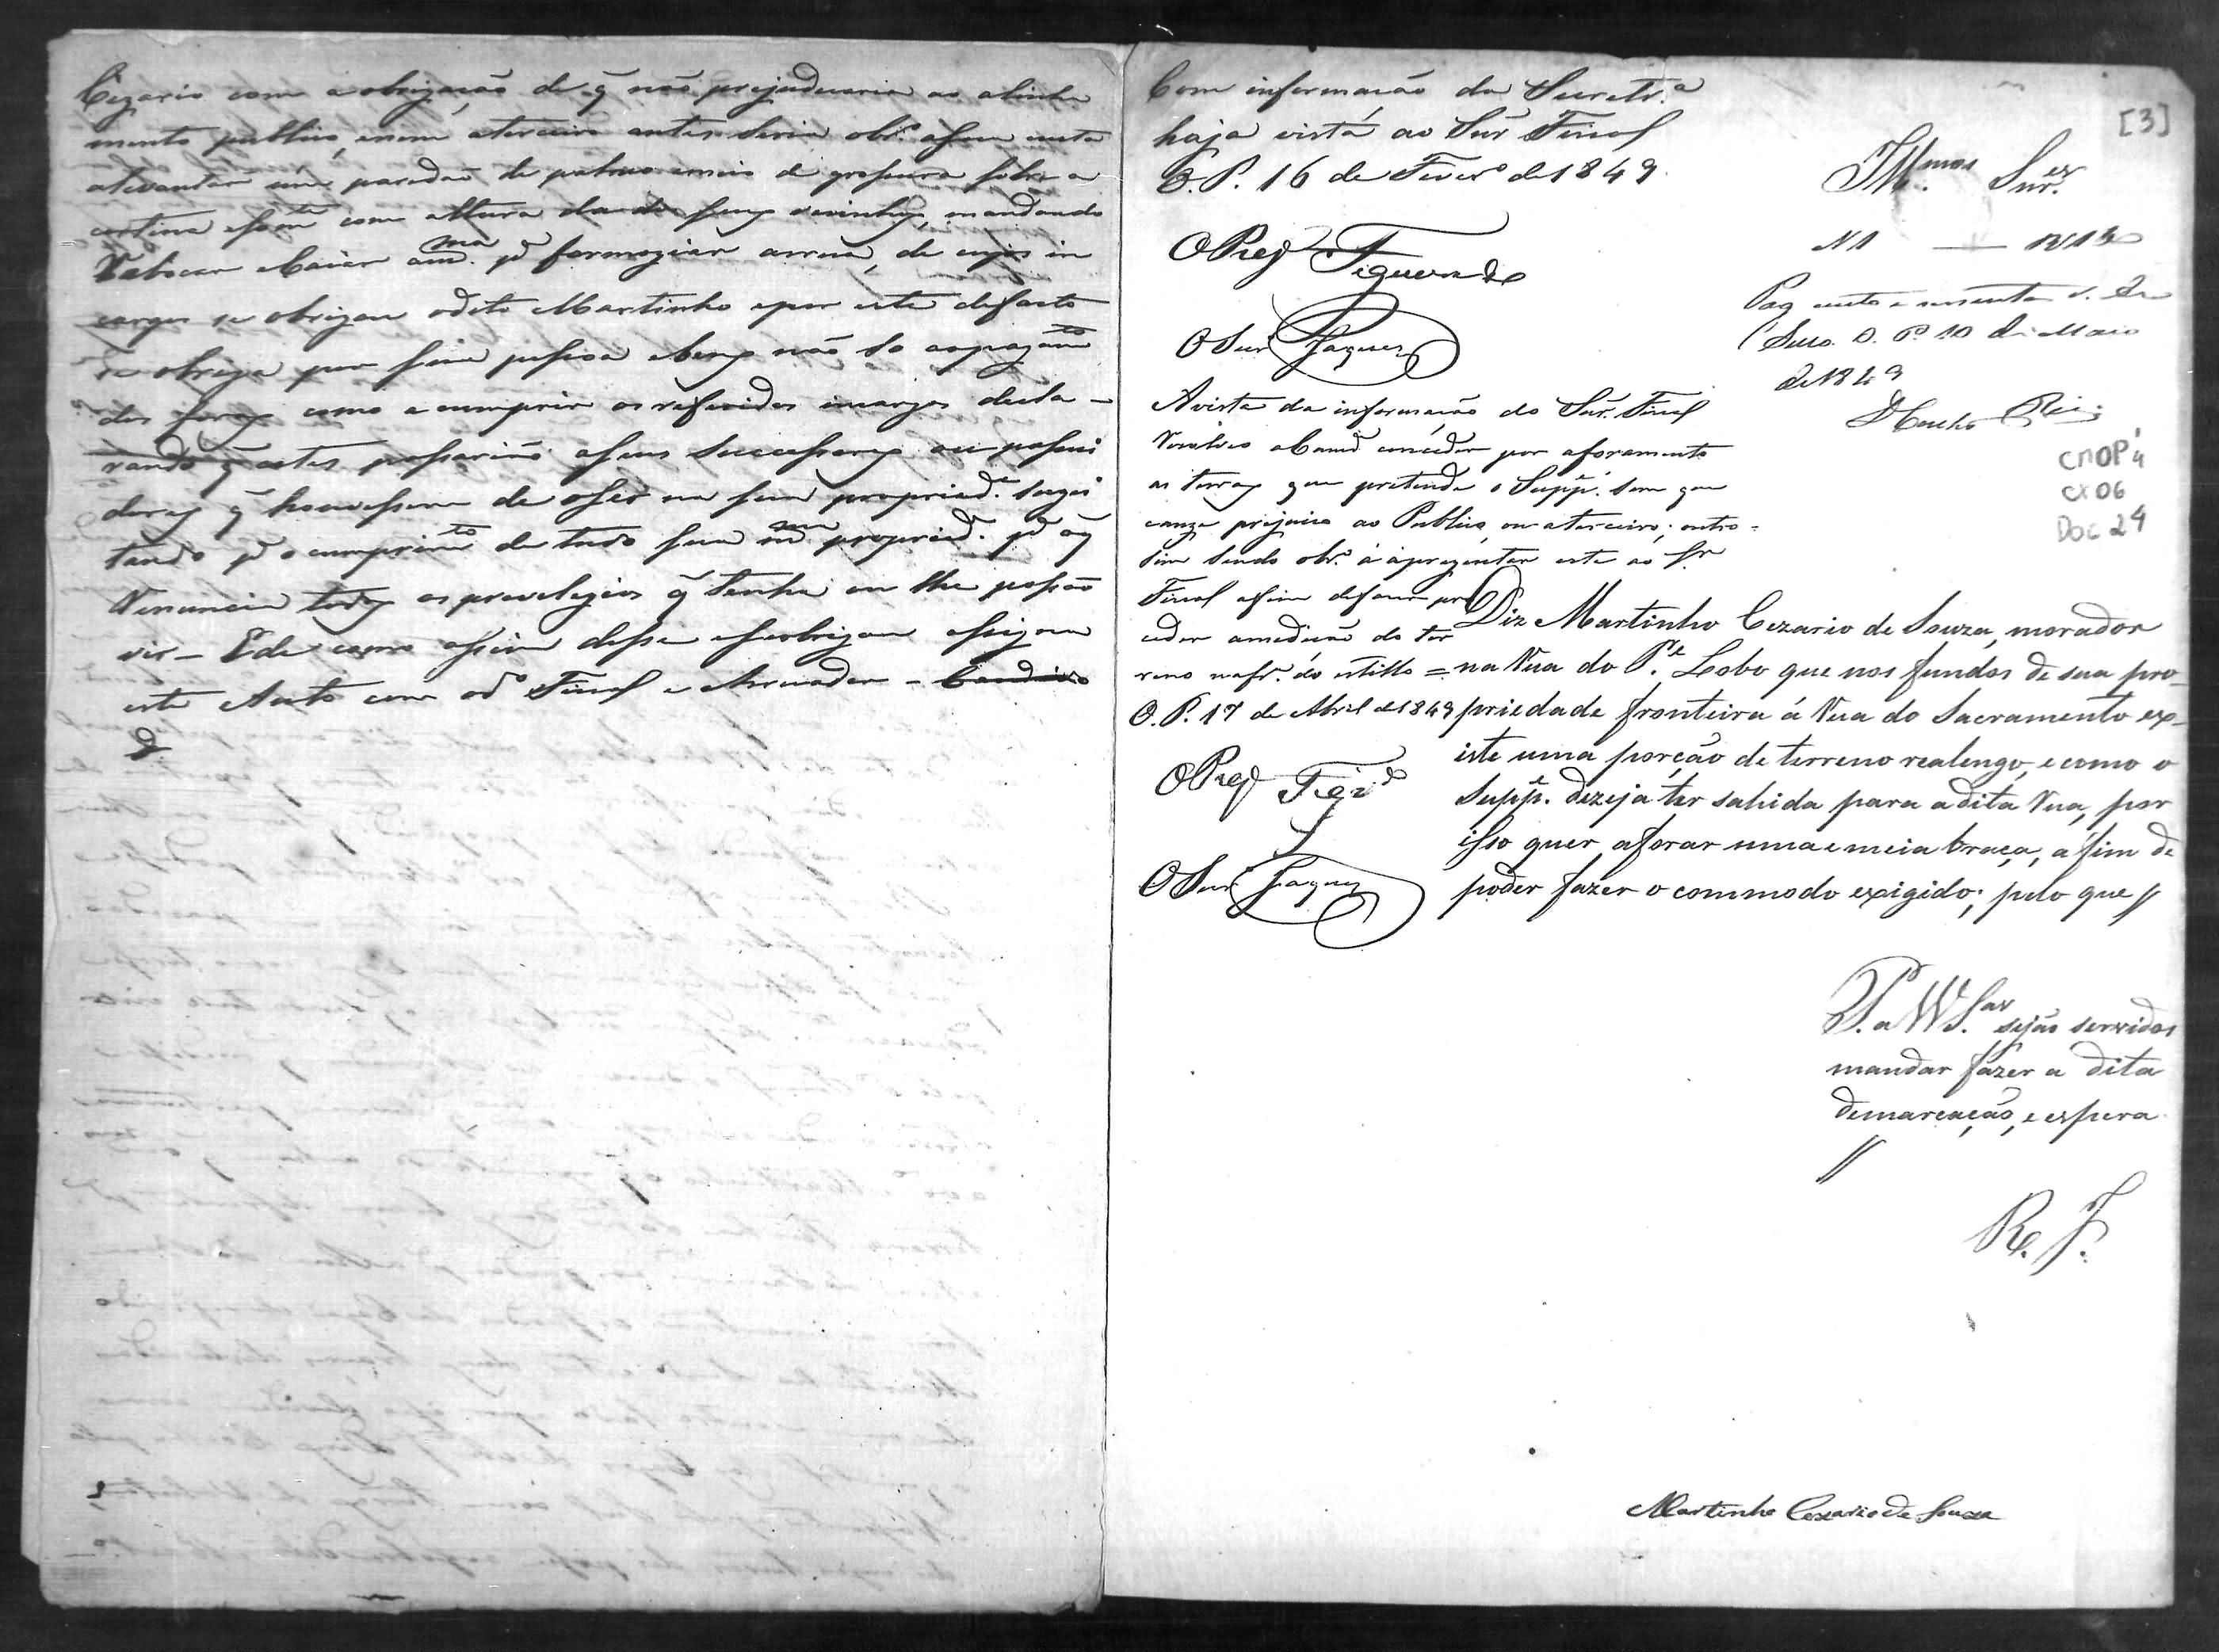 Cezario com a obrigação de q̃ não prejudicaria ao alinha
mento publico, e nem a terceiro antes seria obr.º a sua custa
alevantar um paredão de pedras e meio de grossura sobre a
cortina e com altura da de seus vezinhos, mandando
Rebocar e Caiar a m.ma p.ª formoziar a rua, de cujos in
cargos se obrigou o dito Martinho e por este de facto
se obriga por sua pessoa e bens não só ao pagam.to
dos foros como a cumprir os referidos incargos decla-
rando q̃ estes passarião a seus Successores ou possui
dores q̃ houvessem de o ser na sua propried.e sugei
tando p.ª o cumprim.to de tudo sua m.ma propried.e p.ª o q̃
Renuncia todos os previlegios q̃ tenha ou lhe possão
vir - E de como assim disse e se obrigou assignou
este Auto com o d.º Fiscal e Arruador -
Com informação da Secretr.ª
haja vista ao Snr Fiscal
O. P. 16 de Fever.º de 1849.
O Prez Figueredo
O Secr Jaques
A vista da informação do Snr. Fiscal
Resolveo a Camr.ª conceder por aforamento
as terras que pretende o Supp.e sem que
cauze prejuizo ao Publico, ou a terceiro; outro=
sim sendo obr.º á aprezentar este ao Sr.
Fiscal afim de fazer pro
ceder a medição do ter
reno na fr.ª do estillo =
O. P. 17 de Abril de 1849
O Prez Figr.do
O Secr Jaques
[3]
Ill.mos Snr.es
N 1 —
Pag cento e secenta r. de
Sello. O. P.º 10 de Maio
de 1849
Coelho Reis
CMOP
CX 06
DOC 24
Diz Martinho Cezario de Souza, morador
na Rua do P.e Lobo que nos fundos de sua pro-
priedade fronteira á Rua do Sacramento ex-
iste uma porção de terreno realengo, e como o
Supp.e dezeja ter sahida para a dita Rua, por
isso quer aforar uma e meia braça, á fim de
poder fazer o commodo exigido; pelo que //
P. a VV. S.as sejão servidos
mandar fazer a dita
demarcação, e espera
//
R. J.
Martinho Cezario de Souza